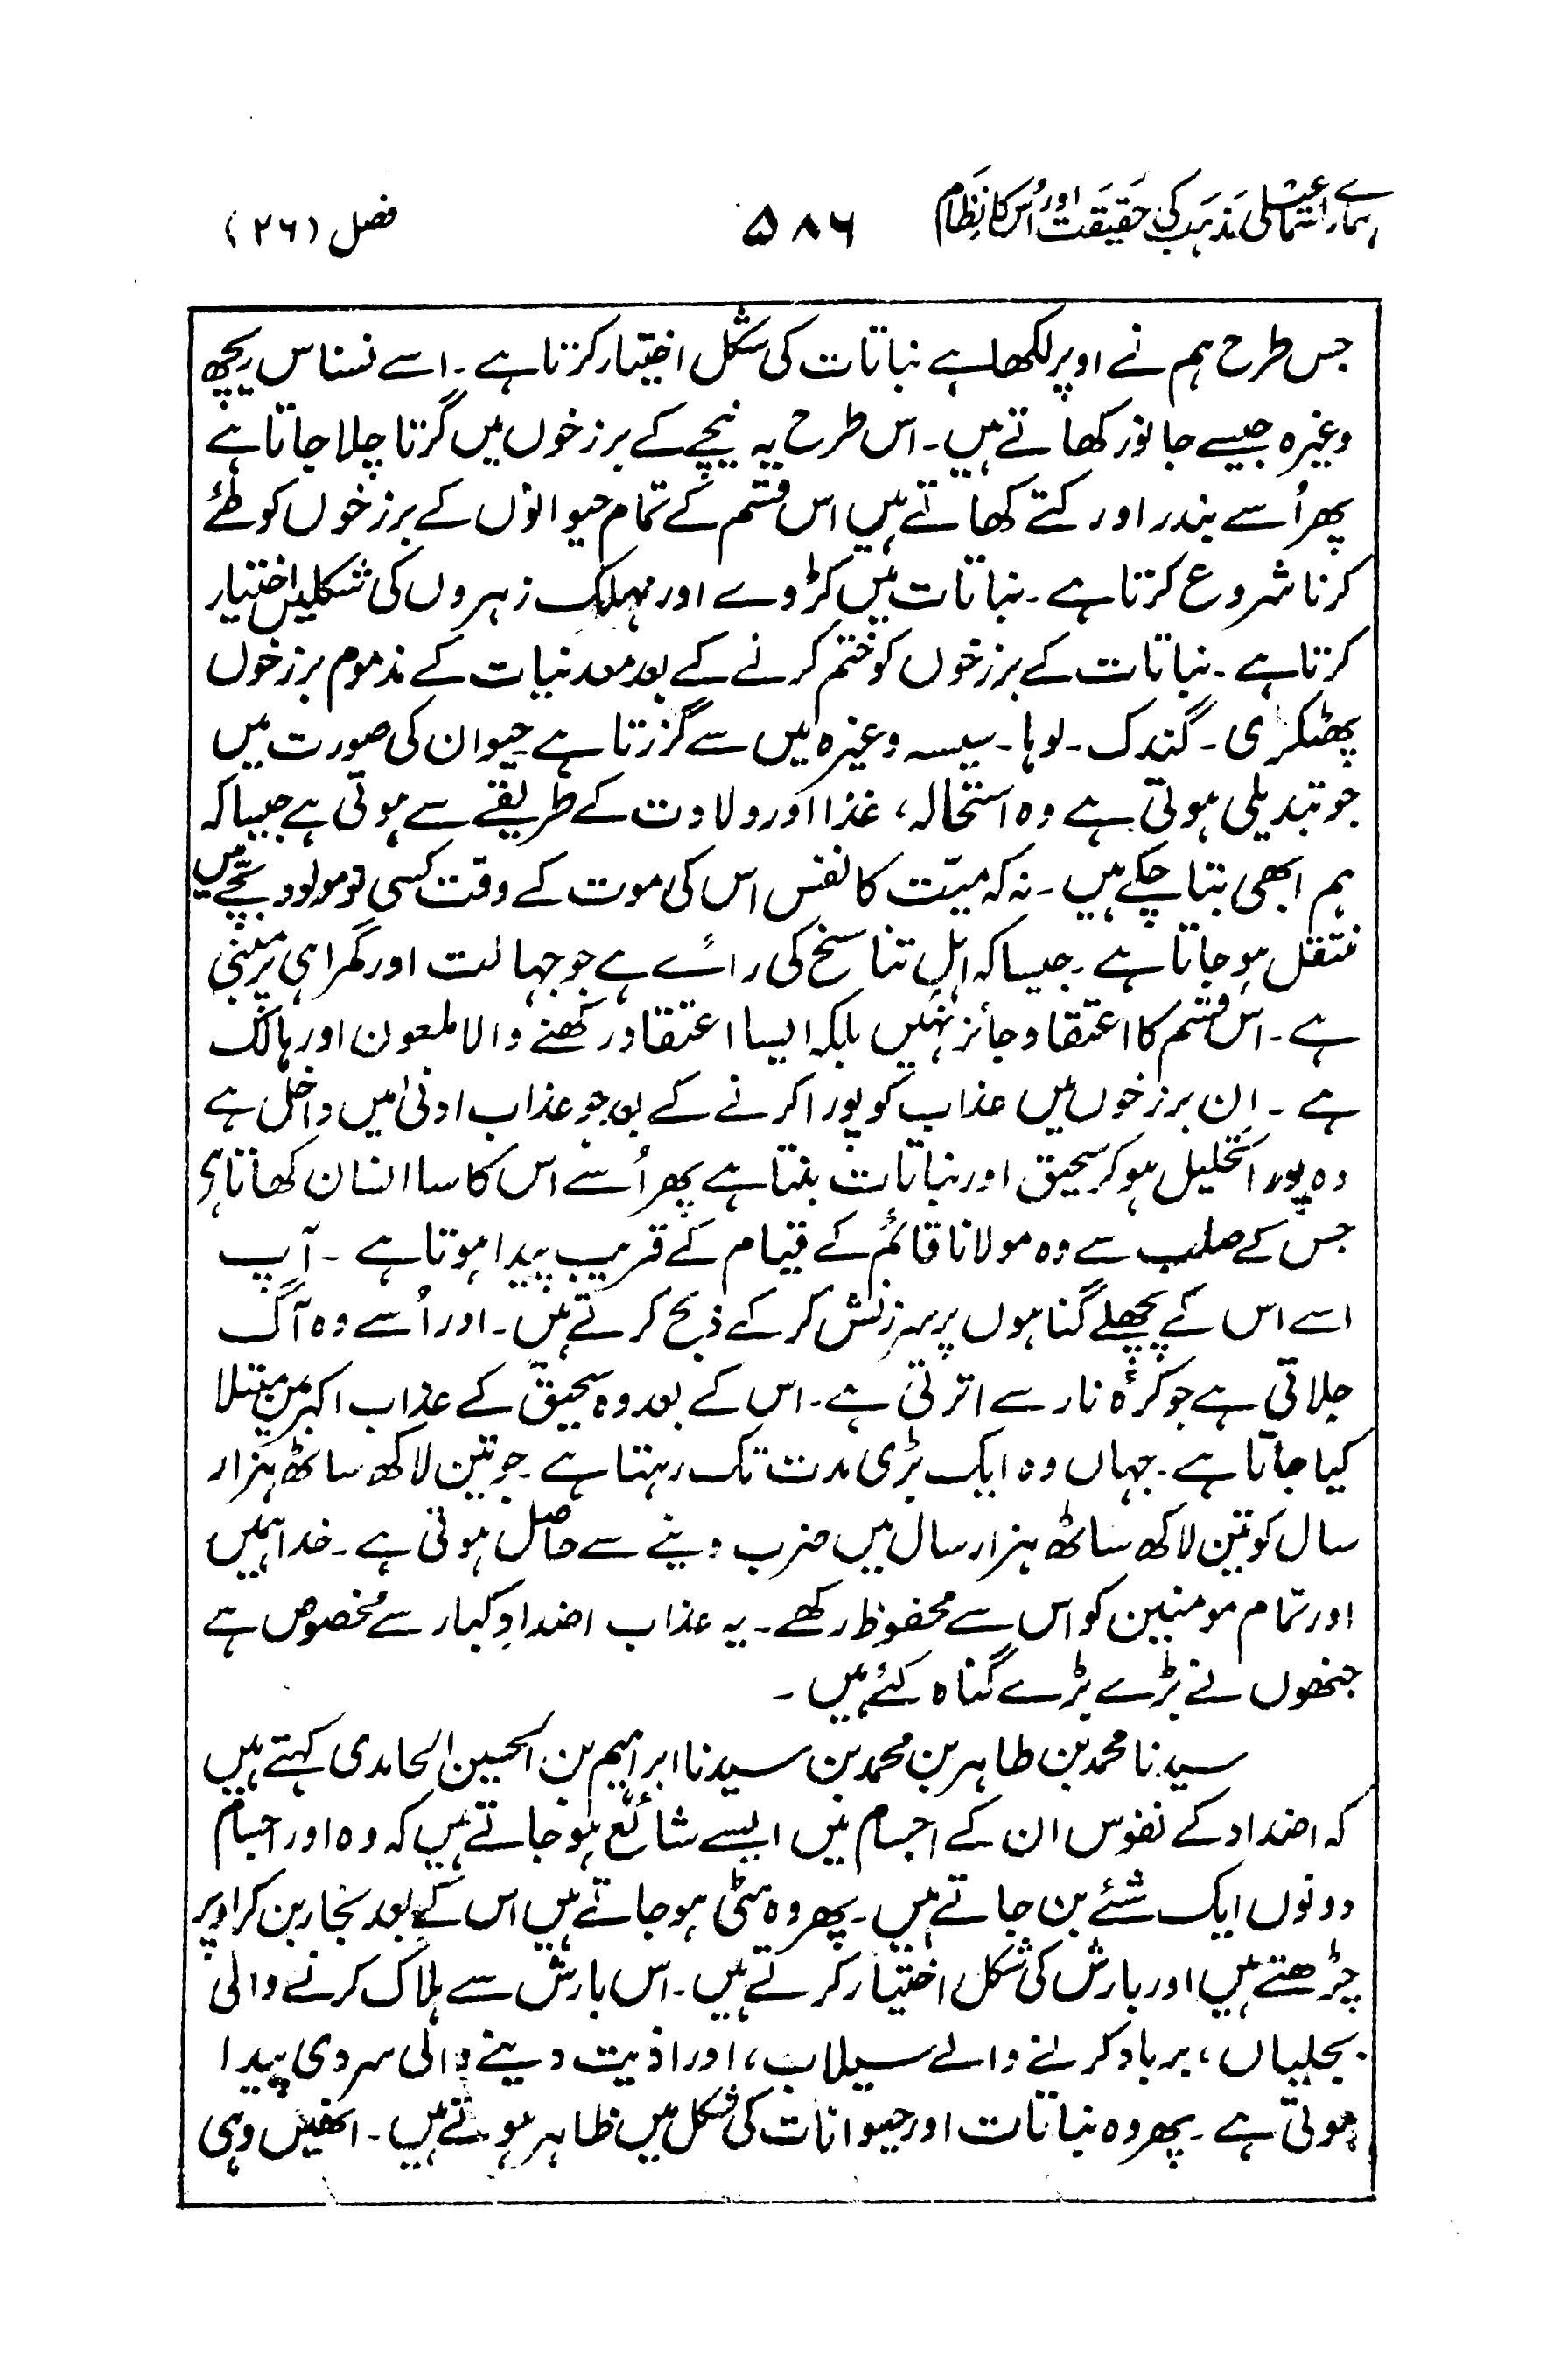 ہمارے اسماعیلی مذہب کی حقیقت اور اُس کا نظام ۵۸۶ فصل (۲۶)
جس طرح ہم نے اوپر لکھا ہے نباتات کی شکل اختیار کرتا ہے ۔ اسے نسناس ریچھ
وغیرہ جیسے جانور کھاتے ہیں ۔ اس طرح یہ نیچے کے برزخوں میں گرتا چلا جاتا ہے
پھر اُسے بندر اور کتے کھاتے ہیں اس قسم کے تمام حیوانوں کے برزخوں کو طئے
کرنا شروع کرتا ہے ۔ نباتات میں کڑوے اور مہلک زہروں کی شکلیں اختیار
کرتا ہے ۔ نباتات کے برزخوں کو ختم کرنے کے بعد معدنیات کے مذموم برزخوں
پھٹکری ۔ گندک ۔ لوہا ۔ سیسہ وغیرہ میں سے گزرتا ہے ۔ حیوان کی صورت میں
جو تبدیلی ہوتی ہے وہ استحالہ، غذا اور ولادت کے طریقے سے ہوتی ہے جیسا کہ
ہم ابھی بتا چکے ہیں ۔ نہ کہ میّت کا نفس اس کی موت کے وقت کسی نومولود بچّے میں
منتقل ہو جاتا ہے ۔ جیسا کہ اہلِ تناسخ کی رائے ہے جو جہالت اور گمراہی پر مبنی
ہے ۔ اس قسم کا اعتقاد جائز نہیں بلکہ ایسا اعتقاد رکھنے والا ملعون اور ہالک
ہے ۔ اِن برزخوں میں عذاب کو پورا کرنے کے بعد جو عذاب ادنیٰ میں داخل ہے
وہ پورا تحلیل ہو کر سحیق اور نباتات بنتا ہے پھر اُسے اس کا سا انسان کھاتا ہی
جس کے صلب سے وہ مولانا قائمؑ کے قیام کے قریب پیدا ہوتا ہے ۔ آپ
اسے اس کے پچھلے گناہوں پر سرزنش کر کے ذبح کرتے ہیں ۔ اور اُسے وہ آگ
جلاتی ہے جو کرۂ نار سے اترتی ہے ۔ اس کے بعد وہ سحیق کے عذاب اکبر میں مبتلا
کیا جاتا ہے ۔ جہاں وہ ایک بڑی مدت تک رہتا ہے ۔ جو تین لاکھ ساٹھ ہزار
سال کو تین لاکھ ساٹھ ہزار سال میں ضرب دینے سے حاصل ہوتی ہے ۔ خدا ہمیں
اور تمام مومنین کو اس سے محفوظ رکھے ۔ یہ عذاب اضدادِ کبار سے مخصوص ہے
جنھوں نے بڑے بڑے گناہ کئے ہیں ۔
سیدنا محمد بن طاہر بن محمد بن سیدنا ابراہیم بن الحسین الحامدی کہتے ہیں
کہ اضداد کے نفوس ان کے اجسام میں ایسے شائع ہو جاتے ہیں کہ وہ اور اجسام
دونوں ایک شئے بن جاتے ہیں ۔ پھر وہ مٹی ہو جاتے ہیں اس کے بعد بخار بن کر اوپر
چڑھتے ہیں اور بارش کی شکل اختیار کرتے ہیں ۔ اس بارش سے ہلاک کرنے والی
بجلیاں، برباد کرنے والے سیلاب، اور اذیت دینے والی سردی پیدا
ہوتی ہے ۔ پھر وہ نباتات اور حیوانات کی شکل میں ظاہر ہوتے ہیں ۔ انھیں وہی